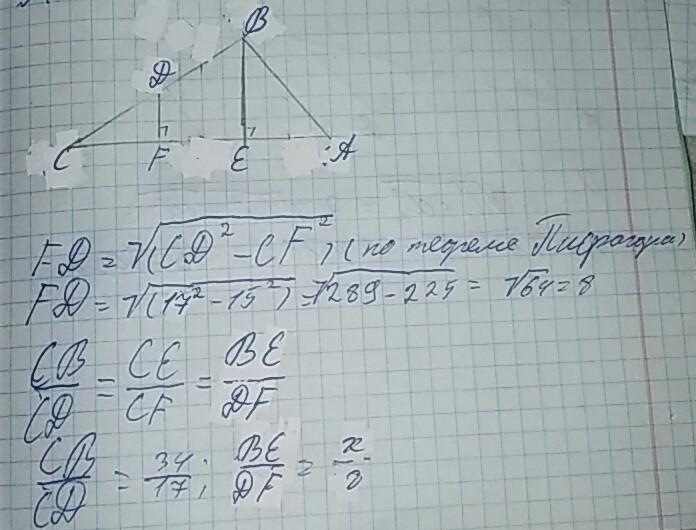 B
D
C F E A
FD = √(CD² - CF²) (по теореме Пифагора)
FD = √(17² - 15²) = √289 - 225 = √64 = 8
CB/CD = CE/CF = BE/DF
CB/CD = 34/17; BE/DF = x/8